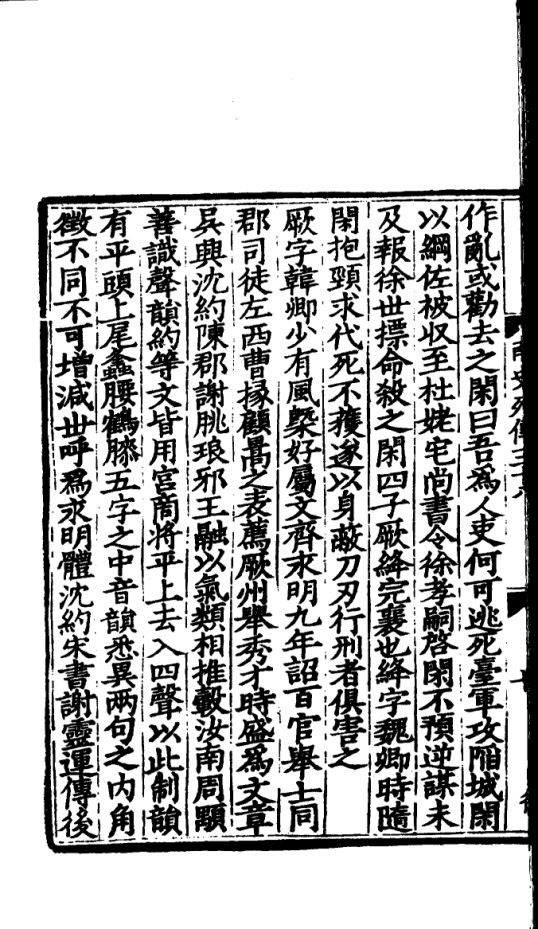 作亂或勸去之閑曰吾爲人吏何可逃死臺軍攻陷城閑
以綱佐被収至杜姥宅尚書令徐孝嗣啓閑不預逆謀未
及報徐世摽命殺之閑四子厥絳完襄也絳字魏卿時隨
閑抱頸求代死不獲遂以身蔽刀刃行刑者俱害之
厥字韓卿少有風槩好屬文齊永明九年詔百官舉士同
郡司徒左西曹掾顧暠之表薦厥州舉秀才時盛爲文章
吳興沈約陳郡謝朓琅邪王融以氣類相推轂汝南周顒
善識聲韻約等文皆用宮商將平上去入四聲以此制韻
有平頭上尾蠭腰鶴膝五字之中音韻悉異兩句之内角
徵不同不可增減世呼爲永明體沈約宋書謝靈運傳後